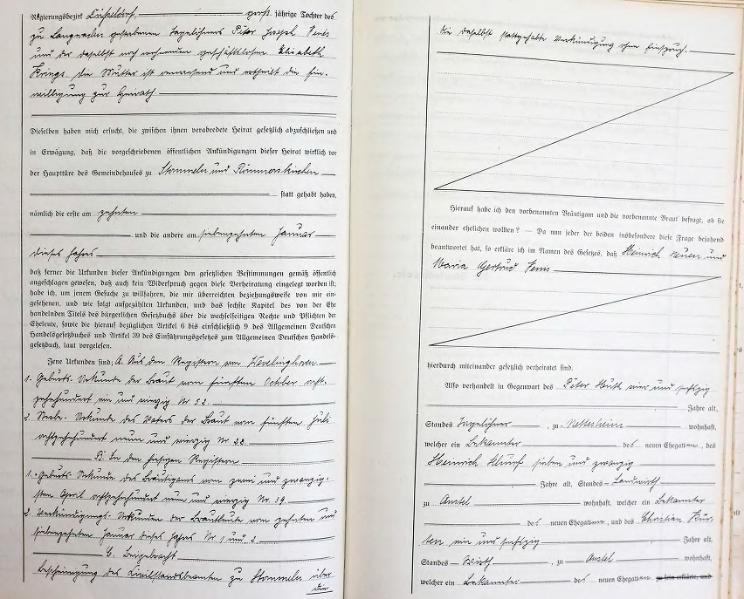 Regierungsbezirk Düsseldorf, großjährige Tochter des
zu Langwaden gestorbenen Tagelöhners Peter Joseph
und der daselbst noch wohnenden geschäftslosen Elisabeth
Krings die Mutter ist anwesend und ertheilt die Ein-
willigung zur Heirath
Dieselben haben mich ersucht, die zwischen ihnen verabredete Heirat gesetzlich abzuschließen und
in Erwägung, daß die vorgeschriebenen öffentlichen Ankündigungen dieser Heirat wirklich vor
der Hauptthüre des Gemeindehauses zu Stommeln und Rommerskirchen
statt gehabt haben,
nämlich die erste am zehnten
und die andere am siebenzehnten Januar
dieses Jahres
daß ferner die Urkunden dieser Ankündigungen den gesetzlichen Bestimmungen gemäß öffentlich
angeschlagen gewesen, daß auch kein Widerspruch gegen diese Verheiratung eingelegt worden ist,
habe ich, um jenem Gesuche zu willfahren, die mir überreichten beziehungsweise von mir ein-
gesehenen, und wie folgt aufgezählten Urkunden, und das sechste Kapitel des von der Ehe
handelnden Titels des bürgerlichen Gesetzbuchs über die wechselseitigen Rechte und Pflichten der
Eheleute, sowie die hierauf bezüglichen Artikel 6 bis einschließlich 9 des Allgemeinen Deutschen
Handelsgesetzbuches und Artikel 39 des Einführungsgesetzes zum Allgemeinen Deutschen Handels-
gesetzbuch, laut vorgelesen.
Jene Urkunden sind: A. Aus den Registern von Hevelinghoven
1. Geburts-Urkunde der Braut vom fünften October acht-
zehnhundert ein und vierzig Nr 52
2. Sterbe-Urkunde des Vaters der Braut vom fünften Juli
achtzehnhundert neun und vierzig Nr 22
B. In den hiesigen Registern
1. Geburts-Urkunde des Bräutigams vom zwei und zwanzig-
sten April achtzehnhundert neun und vierzig Nr. 39
2. Verkündigungs-Urkunden der Brautleute vom zehnten und
siebenzehnten Januar dieses Jahres Nr 1 und 2
C. Beigebracht
Bescheinigung des Civilstandsbeamten zu Stommeln über
die
die daselbst stattgehabte Verkündigung ohne Einspruch.
Hierauf habe ich den vorbenannten Bräutigam und die vorbenannte Braut befragt, ob sie
einander ehelichen wollten? — Da nun jeder der beiden insbesondere diese Frage bejahend
beantwortet hat, so erkläre ich im Namen des Gesetzes, daß Heinrich und
Maria Gertrud
hierdurch miteinander gesetzlich verheiratet sind.
Also verhandelt in Gegenwart des Peter vier und sechzig
Jahre alt,
Standes Tagelöhner, zu Nettesheim wohnhaft,
welcher ein Bekannter des neuen Ehegatten, des
Heinrich sieben und zwanzig
Jahre alt, Standes Landwirth
zu Anstel wohnhaft, welcher ein Bekannter
des neuen Ehegatten, und des Christian
ein und sechzig Jahre alt,
Standes Wirth, zu Anstel wohnhaft,
welcher ein Bekannter des neuen Ehegatten